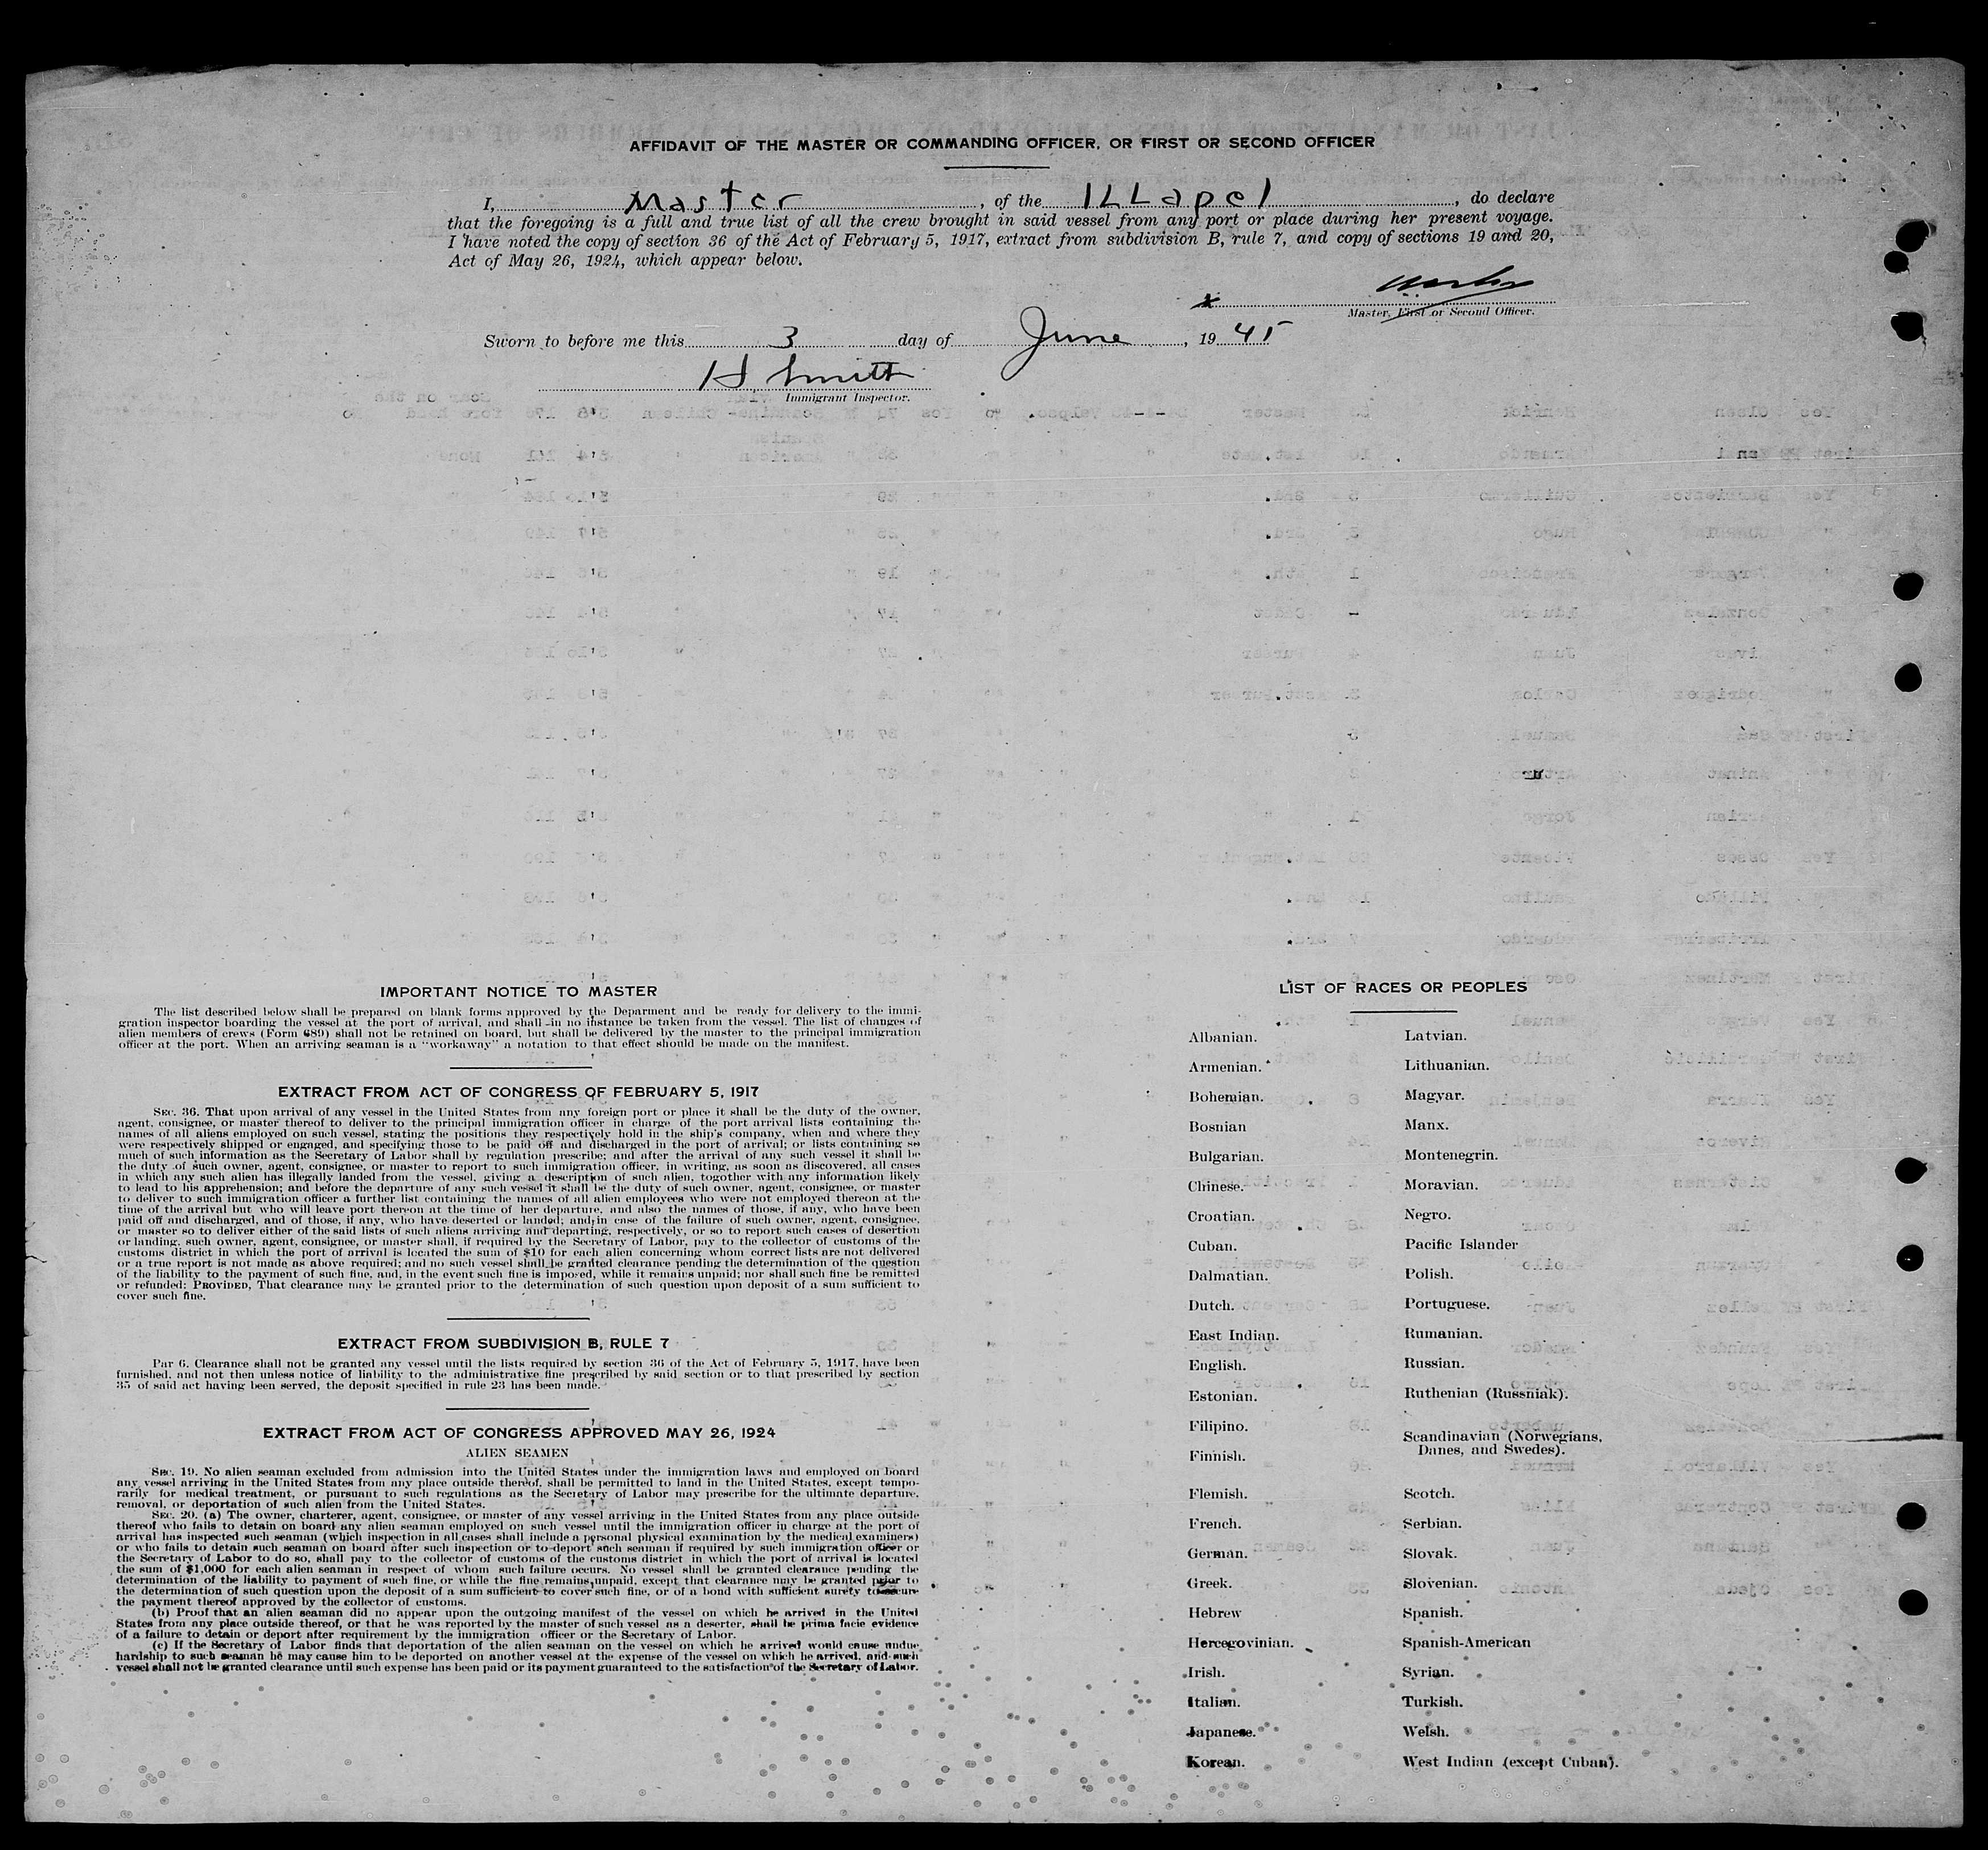 AFFIDAVIT OF THE MASTER OR COMMANDING OFFICER, OR FIRST OR SECOND OFFICER
I, Master, of the ILLapel, do declare
that the foregoing is a full and true list of all the crew brought in said vessel from any port or place during her present voyage.
I have noted the copy of section 36 of the Act of February 5, 1917, extract from subdivision B, rule 7, and copy of sections 19 and 20,
Act of May 26, 1924, which appear below.
x
Master, First or Second Officer.
Sworn to before me this 3 day of June, 19 45
H Smith
Immigrant Inspector.
IMPORTANT NOTICE TO MASTER
The list described below shall be prepared on blank forms approved by the Deparment and be ready for delivery to the immi-
gration inspector boarding the vessel at the port of arrival, and shall in no instance be taken from the vessel. The list of changes of
alien members of crews (Form 689) shall not be retained on board, but shall be delivered by the master to the principal immigration
officer at the port. When an arriving seaman is a "workaway" a notation to that effect should be made on the manifest.
EXTRACT FROM ACT OF CONGRESS OF FEBRUARY 5, 1917
SEC. 36. That upon arrival of any vessel in the United States from any foreign port or place it shall be the duty of the owner,
agent, consignee, or master thereof to deliver to the principal immigration officer in charge of the port arrival lists containing the
names of all aliens employed on such vessel, stating the positions they respectively hold in the ship's company, when and where they
were respectively shipped or engaged, and specifying those to be paid off and discharged in the port of arrival; or lists containing so
much of such information as the Secretary of Labor shall by regulation prescribe; and after the arrival of any such vessel it shall be
the duty of such owner, agent, consignee, or master to report to such immigration officer, in writing, as soon as discovered, all cases
in which any such alien has illegally landed from the vessel, giving a description of such alien, togother with any information likely
to lead to his apprehension; and before the departure of any such vessel it shall be the duty of such owner, agent, consignee, or master
to deliver to such immigration officer a further list containing the names of all alien employees who were not employed thereon at the
time of the arrival but who will leave port thereon at the time of her departure, and also the names of those, if any, who have been
paid off and discharged, and of those, if any, who have deserted or landed; and in case of the failure of such owner, agent, consignee,
or master so to deliver either of the said lists of such aliens arriving and departing, respectively, or so to report such cases of desertion
or landing, such owner, agent, consignee, or master shall, if required by the Secretary of Labor, pay to the collector of customs of the
customs district in which the port of arrival is located the sum of $10 for each alien concerning whom correct lists are not delivered
or a true report is not made as above required; and no such vessel shall be granted clearance pending the determination of the question
of the liability to the payment of such fine, and, in the event such fine is imposed, while it remains unpaid; nor shall such fine be remitted
or refunded: PROVIDED, That clearance may be granted prior to the determination of such question upon deposit of a sum sufficient to
cover such fine.
EXTRACT FROM SUBDIVISION B, RULE 7
Par 6. Clearance shall not be granted any vessel until the lists required by section 36 of the Act of February 5, 1917, have been
furnished, and not then unless notice of liability to the administrative fine prescribed by said section or to that prescribed by section
35 of said act having been served, the deposit specified in rule 23 has been made.
EXTRACT FROM ACT OF CONGRESS APPROVED MAY 26, 1924
ALIEN SEAMEN
SEC. 19. No alien seaman excluded from admission into the United States under the immigration laws and employed on board
any vessel arriving in the United States from any place outside thereof, shall be permitted to land in the United States, except tempo-
rarily for medical treatment, or pursuant to such regulations as the Secretary of Labor may prescribe for the ultimate departure,
removal, or deportation of such alien from the United States.
SEC. 20. (a) The owner, charterer, agent, consignee, or master of any vessel arriving in the United States from any place outside
thereof who fails to detain on board any alien seaman employed on such vessel until the immigration officer in charge at the port of
arrival has inspected such seaman (which inspection in all cases shall include a personal physical examination by the medical examiners)
or who fails to detain such seaman on board after such inspection or to deport such seaman if required by such immigration officer or
the Secretary of Labor to do so, shall pay to the collector of customs of the customs district in which the port of arrival is located
the sum of $1,000 for each alien seaman in respect of whom such failure occurs. No vessel shall be granted clearance pending the
determination of the liability to payment of such fine, or while the fine remains unpaid, except that clearance may be granted prior to
the determination of such question upon the deposit of a sum sufficient to cover such fine, or of a bond with sufficient surety to secure
the payment thereof approved by the collector of customs.
(b) Proof that an alien seaman did no appear upon the outgoing manifest of the vessel on which he arrived in the United
States from any place outside thereof, or that he was reported by the master of such vessel as a deserter, shall be prima facie evidence
of a failure to detain or deport after requirement by the immigration officer or the Secretary of Labor.
(c) If the Secretary of Labor finds that deportation of the alien seaman on the vessel on which he arrived would cause undue
hardship to such seaman he may cause him to be deported on another vessel at the expense of the vessel on which he arrived, and such
vessel shall not be granted clearance until such expense has been paid or its payment guaranteed to the satisfaction of the Secretary of Labor.
LIST OF RACES OR PEOPLES
Albanian.
Armenian.
Bohemian.
Bosnian
Bulgarian.
Chinese.
Croatian.
Cuban.
Dalmatian.
Dutch.
East Indian.
English.
Estonian.
Filipino.
Finnish.
Flemish.
French.
German.
Greek.
Hebrew
Hercegovinian.
Irish.
Italian.
Japanese.
Korean.
Latvian.
Lithuanian.
Magyar.
Manx.
Montenegrin.
Moravian.
Negro.
Pacific Islander
Polish.
Portuguese.
Rumanian.
Russian.
Ruthenian (Russniak).
Scandinavian (Norwegians,
Danes, and Swedes).
Scotch.
Serbian.
Slovak.
Slovenian.
Spanish.
Spanish-American
Syrian.
Turkish.
Welsh.
West Indian (except Cuban).